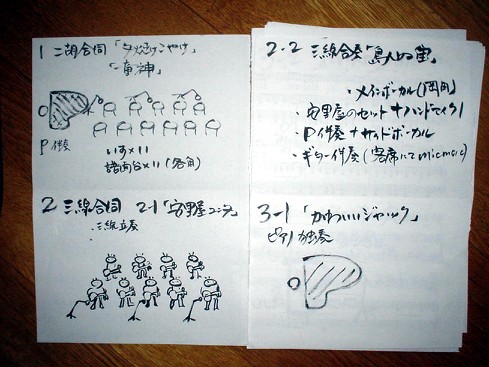 1 二胡合同「夕焼けこやけ」
「竜神」
P 伴奏
いす×11
譜面台×11 (各自)
2 三線合同 2-1「安里屋ユンタ」
・三線立奏
2-2 三線合奏「島人ぬ宝」
・メインボーカル
・安里屋のセット+ハンドマイク1
・P伴奏+サッドボーカル
・ギター伴奏(客席にてmicmac)
3-1 「かわいいジャック」
ピアノ独奏